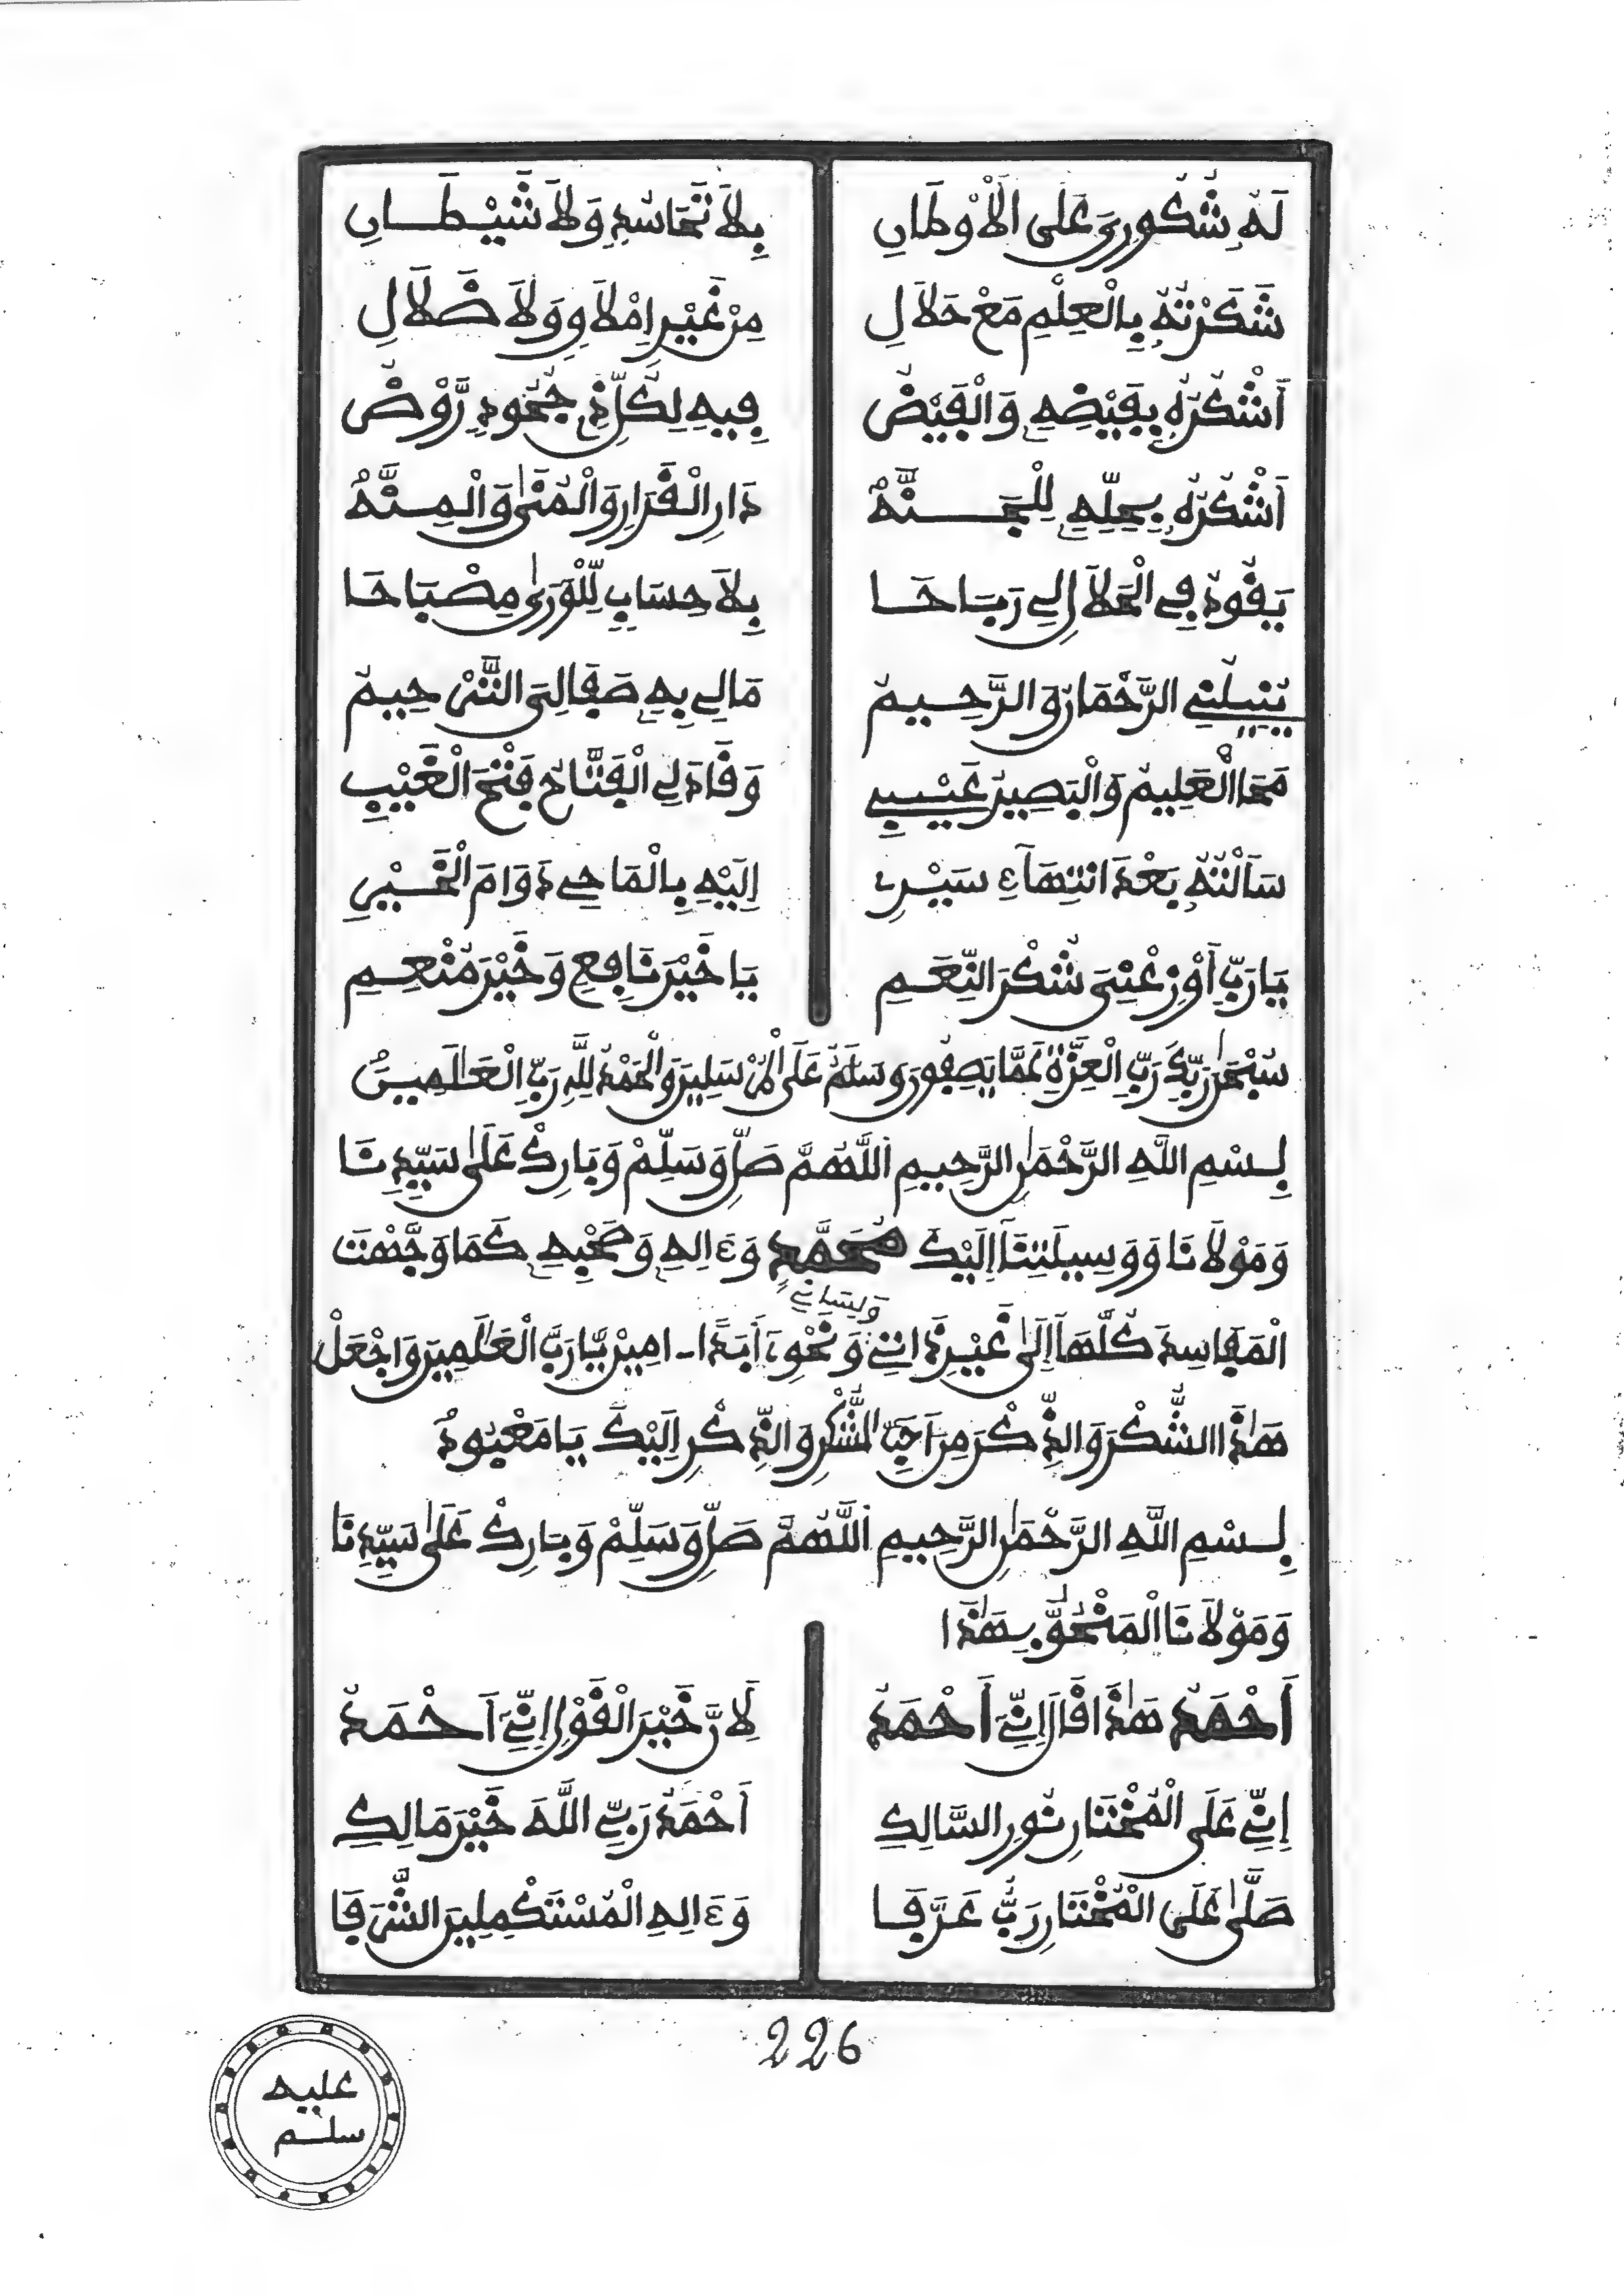 لَهُ شُكُورِي عَلَى الْأَوْطَانِ بِلَا تَحَاسُدٍ وَلَا شَيْطَانِ
شَكَرْتُهُ بِالْعِلْمِ مَعْ حَلَالِ مِنْ غَيْرِ إِمْلَاقٍ وَلَا ضَلَالِ
أَشْكُرُهُ بِفَيْضِهِ وَالْفَيْضُ فِيهِ لِكُلِّ ذِي جُحُودٍ رَّوْضُ
أَشْكُرُهُ بِحِلِّهِ لِلْجَنَّهْ دَارِ الْقَرَارِ وَالْمُنَى وَالْمِنَّهْ
يَقُودُ فِي الْحَلَالِ لِي رَبَاحَا بِلَا حِسَابٍ لِّلْوَرَى مِصْبَاحَا
يُنِيلُنِي الرَّحْمَانُ وَالرَّحِيمُ مَا لِي بِهِ صَفَا لِيَ التَّنْحِيمُ
مَحَا الْعَلِيمُ وَالْبَصِيرُ عَيْبِي وَقَادَ لِي الْفَتَّاحُ فَتْحَ الْغَيْبِ
سَأَلْتُهُ بَعْدَ انْتِهَاءِ سَيْرِي إِلَيْهِ بِالْمَاحِي دَوَامَ الْخَيْرِ
يَا رَبِّ أَوْزِعْنِيَ شُكْرَ النِّعَمِ يَا خَيْرَ نَافِعٍ وَخَيْرَ مُنْعِمِ
سُبْحَٰنَ رَبِّكَ رَبِّ الْعِزَّةِ عَمَّا يَصِفُونَ وَسَلَٰمٌ عَلَى الْمُرْسَلِينَ وَالْحَمْدُ لِلَّهِ رَبِّ الْعَٰلَمِينَ
بِسْمِ اللَّهِ الرَّحْمَٰنِ الرَّحِيمِ اللَّهُمَّ صَلِّ وَسَلِّمْ وَبَارِكْ عَلَىٰ سَيِّدِنَا
وَمَوْلَانَا وَوَسِيلَتِنَا إِلَيْكَ مُحَمَّدٍ وَءَالِهِ وَصَحْبِهِ كَمَا وَجَّهْتَ
الْمَفَاسِدَ كُلَّهَا إِلَىٰ غَيْرِ ذَاتِي وَلِسَانِي وَنَحْوِي أَبَدًا ـ امِينْ يَّا رَبَّ الْعَٰلَمِينَ وَاجْعَلْ
هَٰذَا الشُّكْرَ وَالذِّكْرَ مِنْ أَحَبِّ الشُّكْرِ وَالذِّكْرِ إِلَيْكَ يَا مَعْبُودُ
بِسْمِ اللَّهِ الرَّحْمَٰنِ الرَّحِيمِ اللَّهُمَّ صَلِّ وَسَلِّمْ وَبَارِكْ عَلَىٰ سَيِّدِنَا
وَمَوْلَانَا الْمَنْحُوِّ بِهَٰذَا
أَحْمَدُ هَٰذَا قَالَ إِنِّي أَحْمَدُ لِأَنَّ خَيْرَ الْقَوْلِ إِنِّي أَحْمَدُ
إِنِّي عَلَى الْمُخْتَارِ نُورِ السَّالِكِ أَحْمَدُ رَبِّي اللَّهَ خَيْرَ مَالِكِ
صَلَّىٰ عَلَى الْمُخْتَارِ رَبٌّ عَرَّفَا وَءَالِهِ الْمُسْتَكْمِلِينَ الشَّرَفَا
226
عليه
سلم